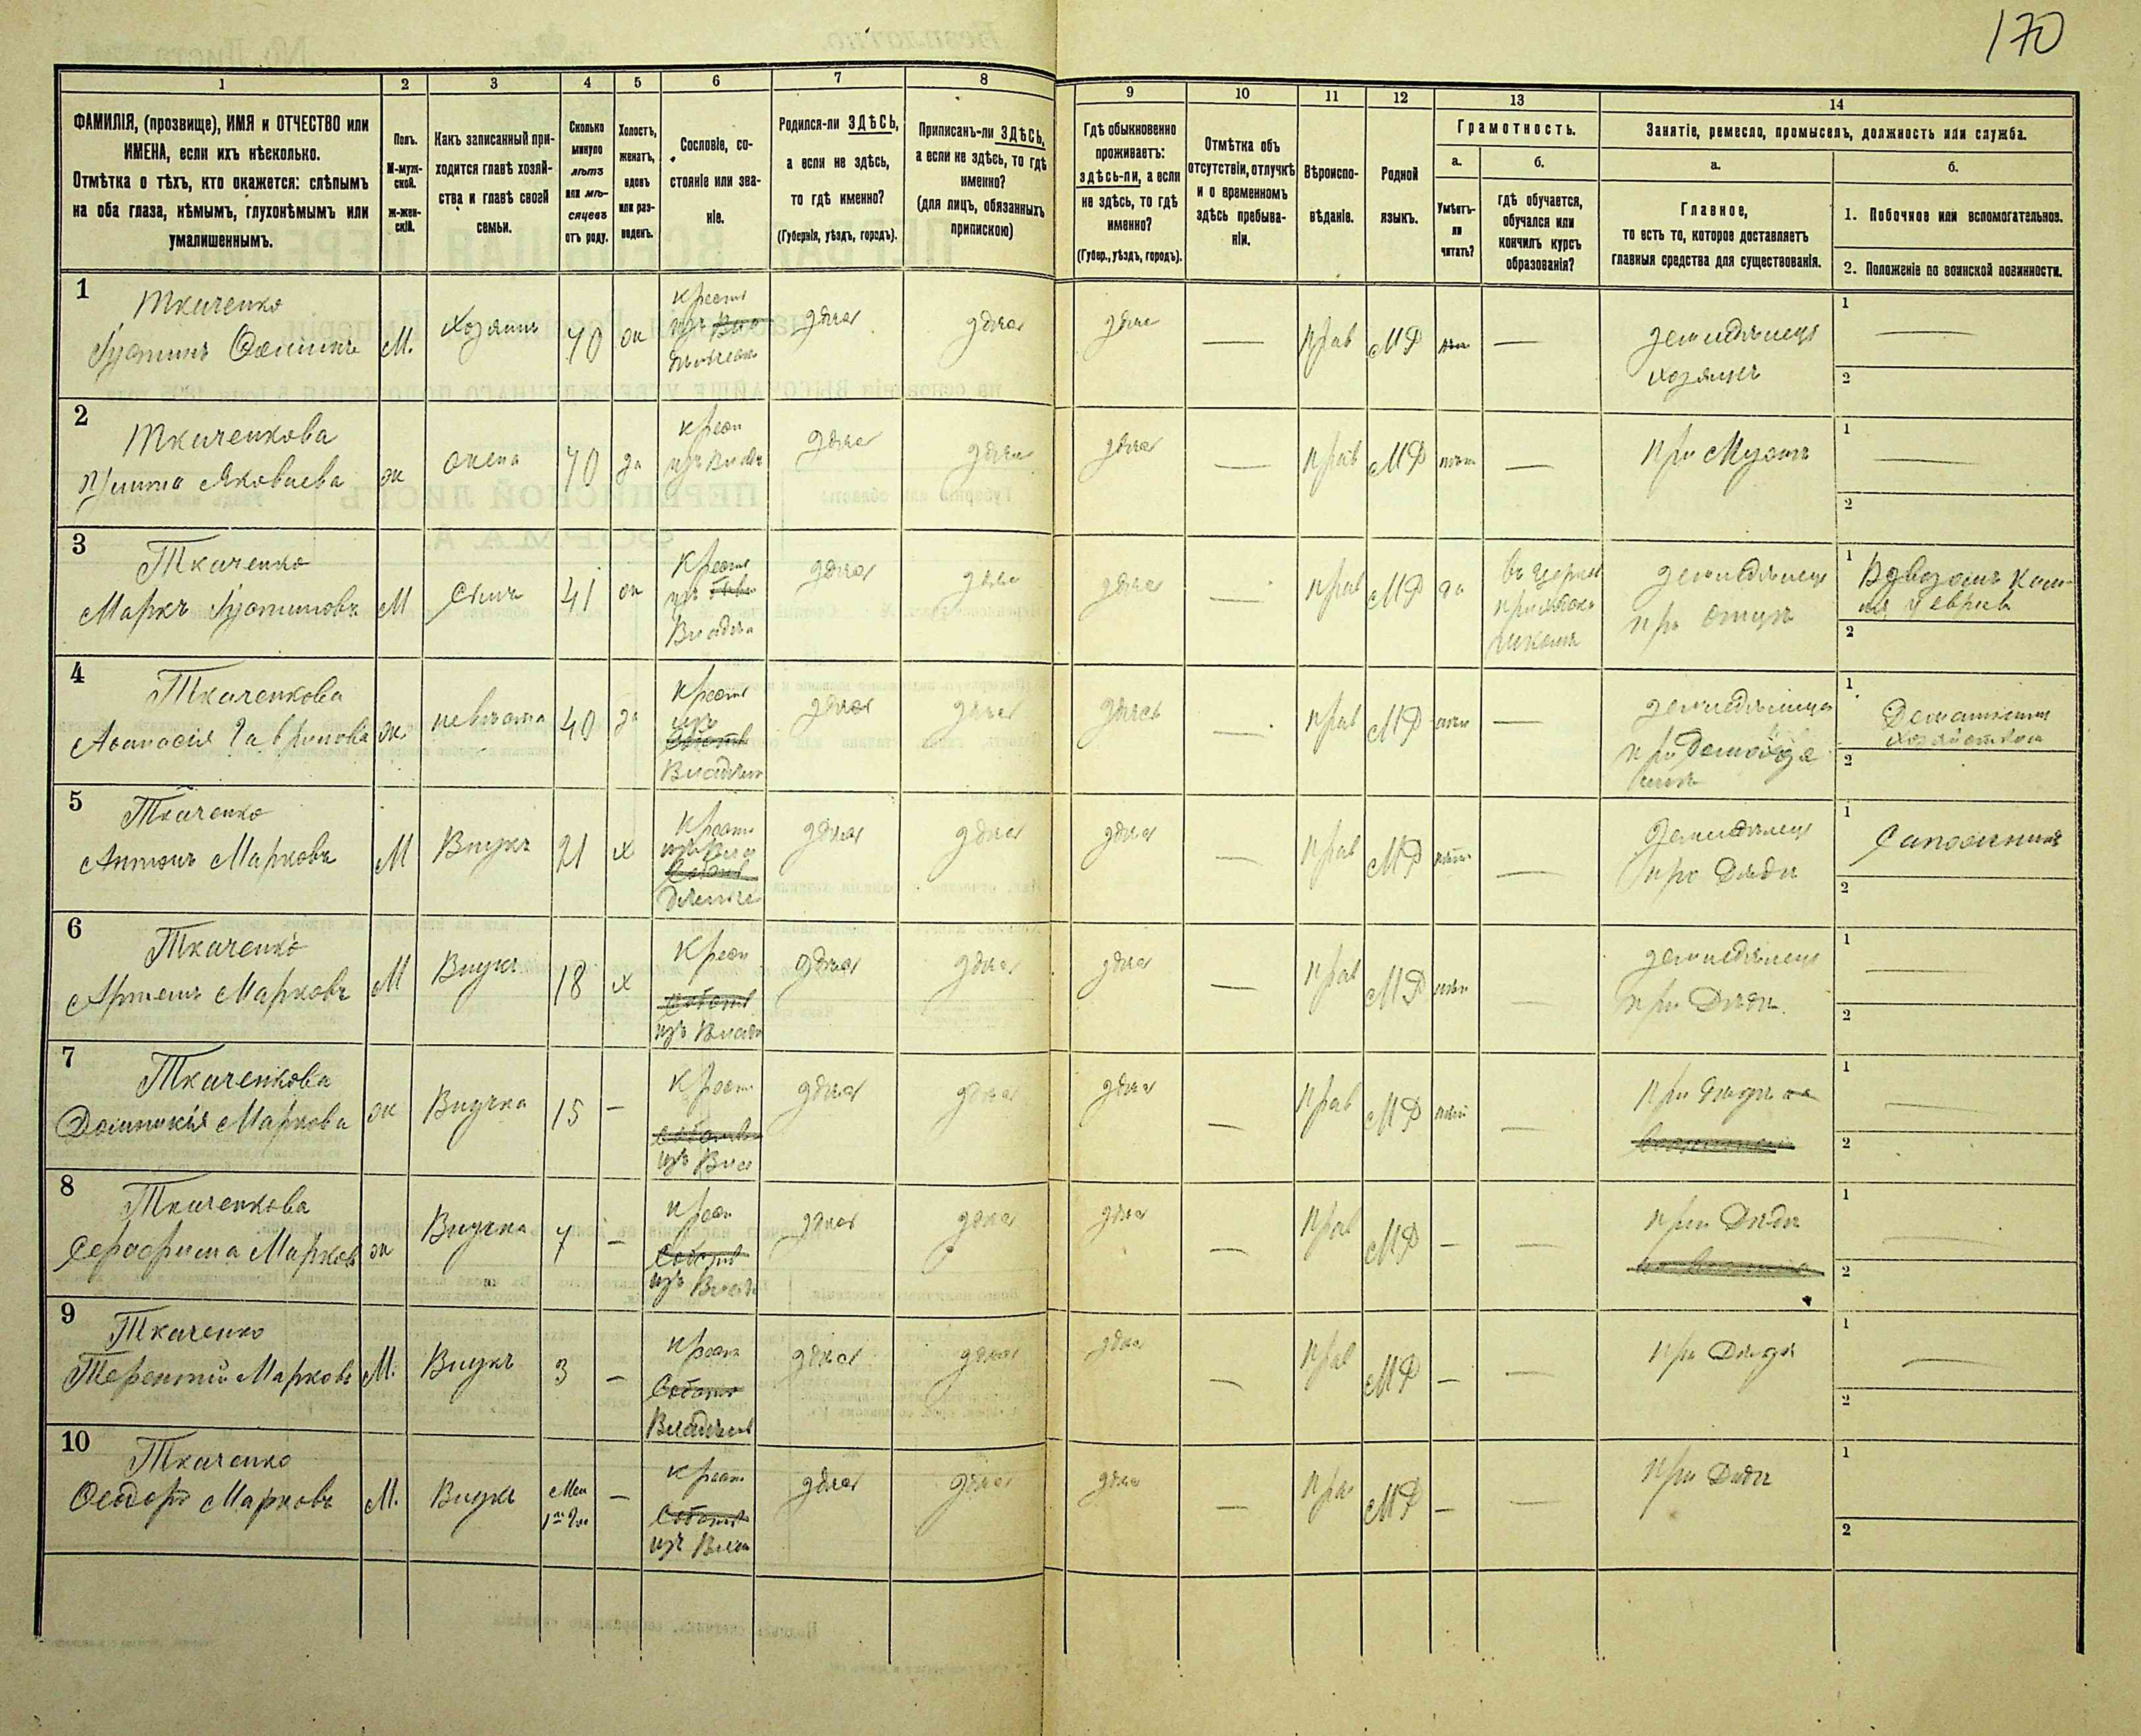 170
1
2
3
4
5
6
7
8
9
10
11
12
13
14
ФАМИЛІЯ, (прозвище), ИМЯ и ОТЧЕСТВО или
ИМЕНА, если ихъ нѣсколько.
Отмѣтка о тѣхъ, кто окажется: слѣпымъ
на оба глаза, нѣмымъ, глухонѣмымъ или
умалишеннымъ.
Полъ.
М-муж-
ской.
Ж-жен-
скій.
Какъ записанный при-
ходится главѣ хозяй-
ства и главѣ своей
семьи.
Сколько
минуло
лѣтъ
или мѣ-
сяцевъ
отъ роду.
Холостъ,
женатъ,
вдовъ
или раз-
веденъ.
Сословіе, со-
стояніе или зва-
ніе.
Родился-ли ЗДѢСЬ,
а если не здѣсь,
то гдѣ именно?
(Губернія, уѣздъ, городъ).
Приписанъ-ли ЗДѢСЬ,
а если не здѣсь, то гдѣ
именно?
(для лицъ, обязанныхъ
припискою)
Гдѣ обыкновенно
проживаетъ:
здѣсь-ли, а если
не здѣсь, то гдѣ
именно?
(Губер., уѣздъ, городъ).
Отмѣтка объ
отсутствіи, отлучкѣ
и о временномъ
здѣсь пребыва-
ніи.
Вѣроиспо-
вѣданіе.
Родной
языкъ.
Грамотность.
а.
Умѣетъ-
ли
читать?
б.
гдѣ обучается,
обучался или
кончилъ курсъ
образованія?
Занятіе, ремесло, промыселъ, должность или служба.
а.
Главное,
то есть то, которое доставляетъ
главныя средства для существованія.
б.
1. Побочное или вспомогательное.
2. Положеніе по воинской повинности.
1
Ткаченко
Іустинъ
М.
Хозяинъ
70
ж
крест
здѣсь
здѣсь
здѣсь
—
прав
МР
—
земледѣлецъ
хозяинъ
1
—
2
2
Ткаченкова
Яковлева
ж
жена
70
за
крест
здѣсь
здѣсь
здѣсь
—
прав
МР
нѣт
—
при Мужѣ
1
—
2
3
Ткаченко
Маркъ Іустиновъ
М
Сынъ
41
ж
Крест
Владѣл
здѣсь
здѣсь
здѣсь
—
прав
МР
да
въ церков
приходск
школѣ
земледѣлецъ
при отцѣ
1
2
4
Ткаченкова
Афанасія Гаврилова
ж
невѣстка
40
за
Крест
изъ
Владѣл
здѣсь
здѣсь
здѣсь
—
прав
МР
—
земледѣлица
1
Домашнимъ
хозяйством
2
5
Ткаченко
Антонъ Марковъ
М
Внукъ
21
х
Крест
здѣсь
здѣсь
здѣсь
—
прав
МР
—
Земледѣлецъ
при Дѣдѣ
1
Сапожникъ
2
6
Ткаченко
Артемъ Марковъ
М
Внукъ
18
х
Крест
изъ Влад
здѣсь
здѣсь
здѣсь
—
прав
МР
—
земледѣлецъ
при Дѣдѣ
1
—
2
7
Ткаченкова
Домникія Маркова
ж
Внучка
15
—
Крест
изъ Вла
здѣсь
здѣсь
здѣсь
—
прав
МР
—
при дѣдѣ
1
—
2
8
Ткаченкова
Серафима Марков
ж
Внучка
7
—
крест
изъ Влад
здѣсь
здѣсь
здѣсь
—
прав
МР
—
—
при Дѣдѣ
1
—
2
9
Ткаченко
Терентій Марковъ
М.
Внукъ
3
—
крест
Владѣльч
здѣсь
здѣсь
здѣсь
—
прав
МР
—
—
при Дѣдѣ
1
—
2
10
Ткаченко
Ѳеодоръ Марковъ
М.
Внукъ
—
крест
изъ Влад
здѣсь
здѣсь
здѣсь
—
прав
МР
—
—
при Дѣдѣ
1
2